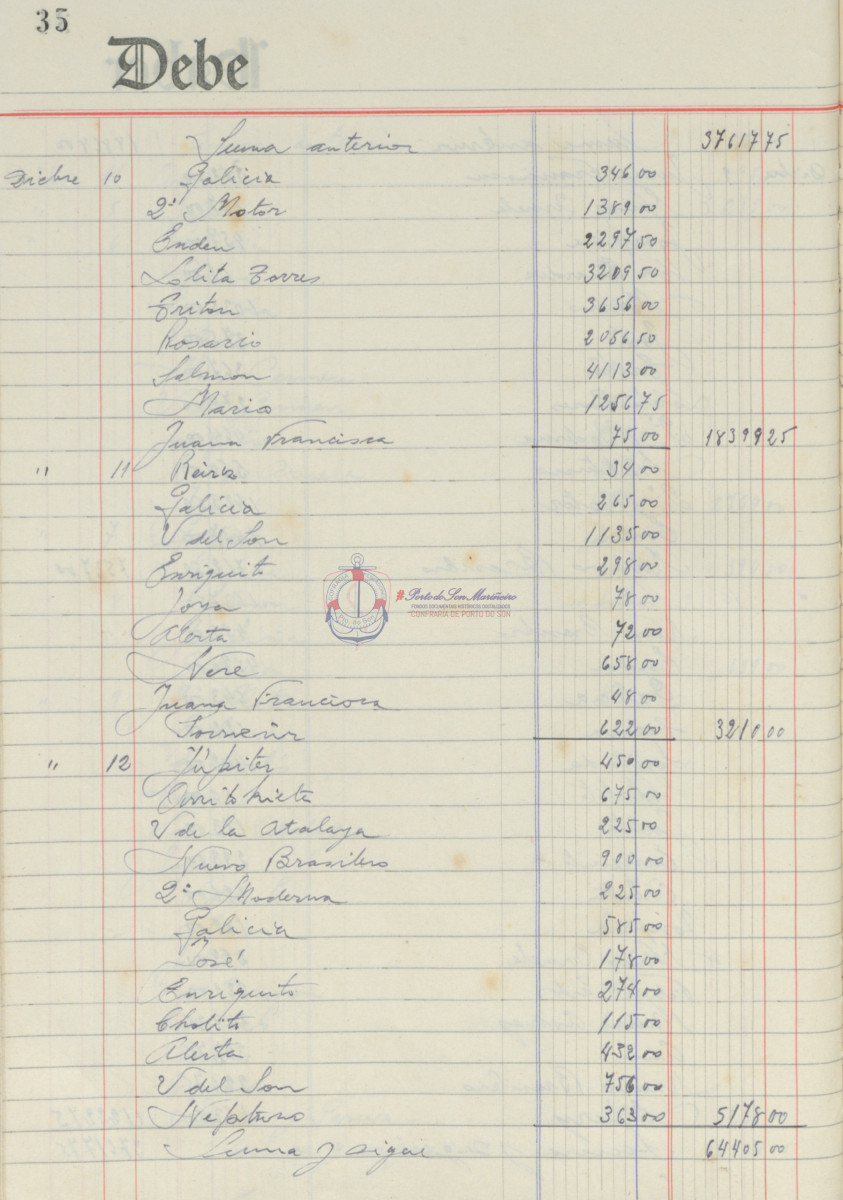 35
Debe
Suma anterior 37617 75
Dicbre 10 Galicia 346 00
2ª Motor 1389 00
Enden 2297 50
Lolita Torres 3209 50
Triton 3656 00
Rosario 2056 50
Salmon 4113 00
Mario 1256 75
Juana Francisca 75 00 18399 25
" 11 34 00
Galicia 265 00
V del Son 1135 00
Enriquito 298 00
Joya 78 00
Alerta 72 00
Nere 658 00
Juana Francisca 48 00
622 00 3210 00
" 12 Júpiter 450 00
675 00
V de la Atalaya 225 00
Nuevo Brasilero 900 00
2ª Moderna 225 00
Galicia 585 00
José 178 00
Enriquito 274 00
Cholito 115 00
Alerta 432 00
V del Son 756 00
Neptuno 363 00 5178 00
Suma y sigue 64405 00
COFRADIA PESCADORES
Pto. do Son
# Porto do Son Mariñeiro
FONDOS DOCUMENTAIS HISTÓRICOS DIXITALIZADOS
CONFRARÍA DE PORTO DO SON